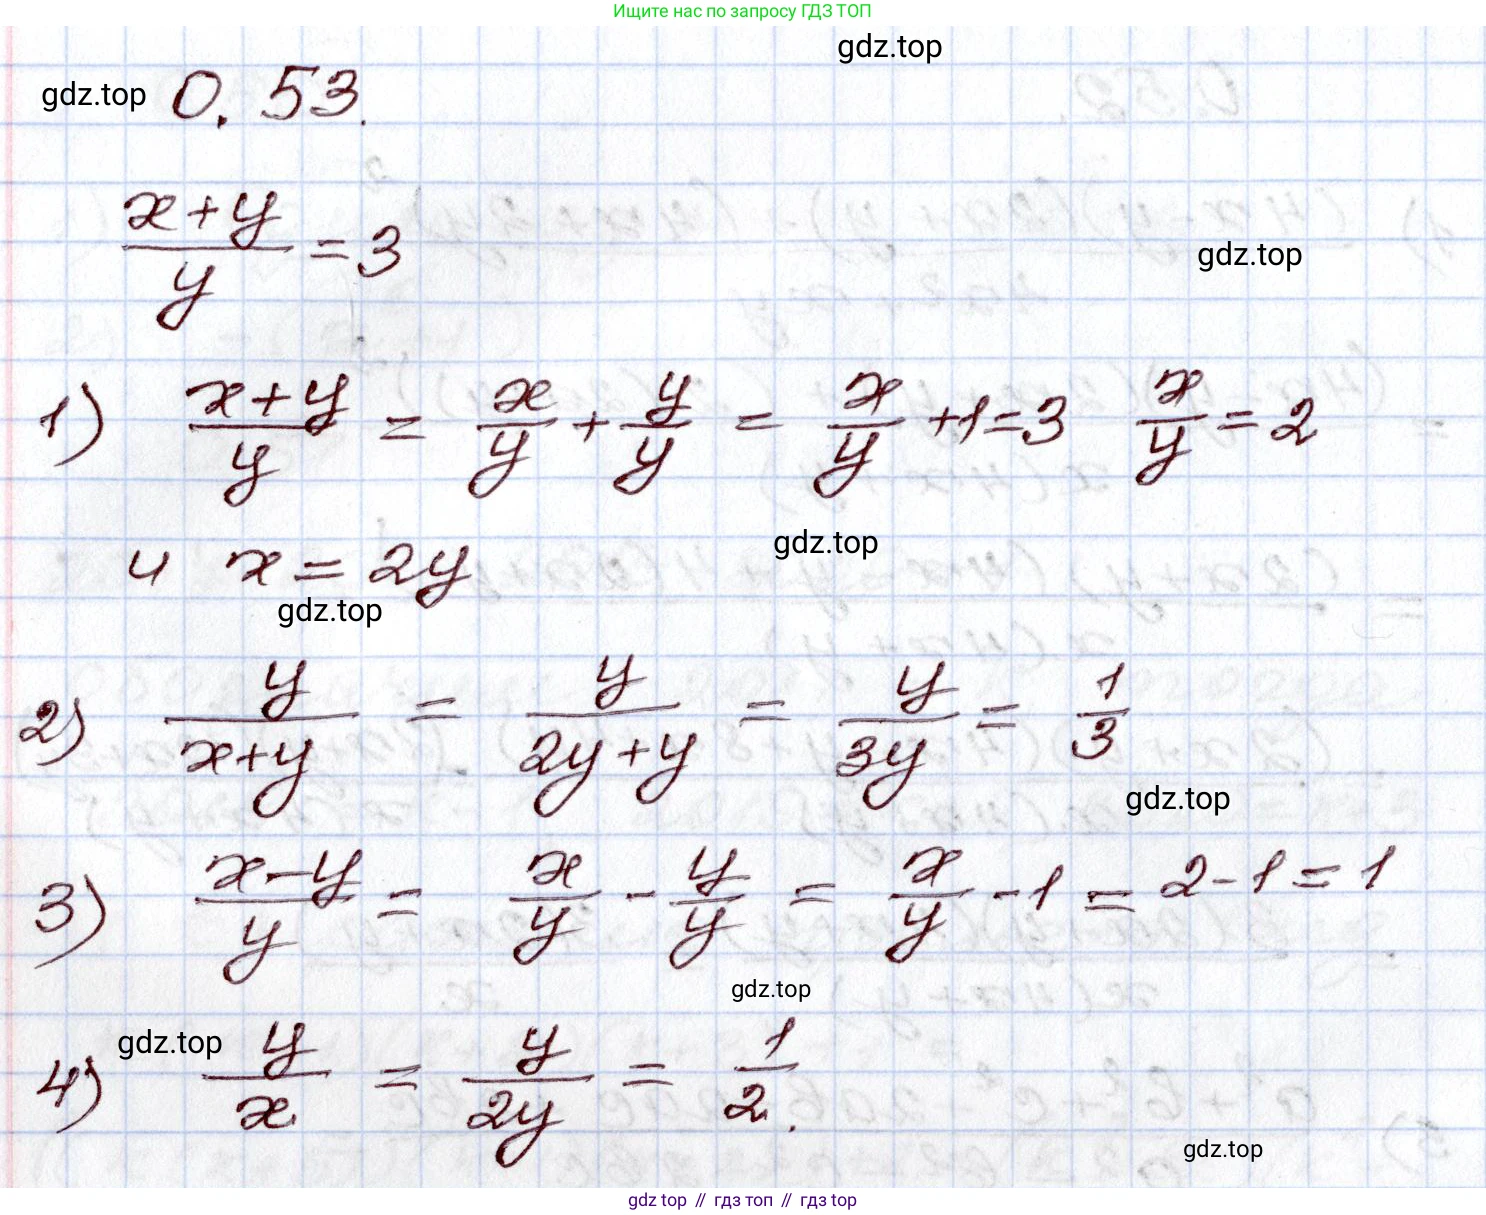 Ищите нас по запросу ГДЗ ТОП
gdz.top
gdz.top 0.53.
(x+y)/y = 3
gdz.top
1) (x+y)/y = x/y + y/y = x/y + 1 = 3 x/y = 2
и x = 2y
gdz.top
gdz.top
2) y/(x+y) = y/(2y+y) = y/3y = 1/3
gdz.top
3) (x-y)/y = x/y - y/y = x/y - 1 = 2-1=1
gdz.top
gdz.top
4) y/x = y/2y = 1/2.
gdz.top
gdz top // гдз топ // gdz top